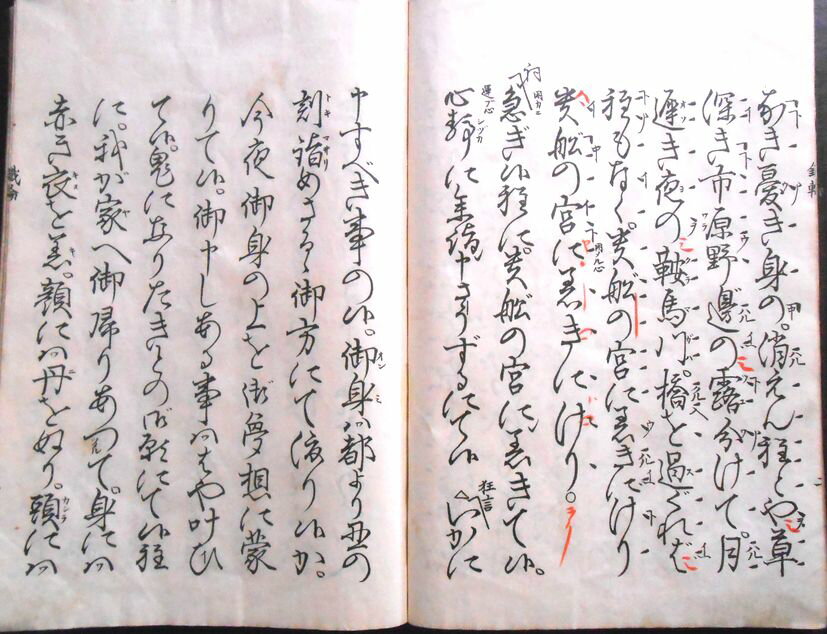 なき憂き身の。消えん程とや草
深き市原野邊の露分けて。月
遲き夜の鞍馬川。橋を過ぐれば
程もなく。貴船の宮に着きにけり
貴船の宮に着きにけり。
急ぎ候程に。貴船の宮に着きて候。
心靜に參詣申さうずるにて候 狂言 いかに
申すべき事の候。御身は都より丑の
刻詣めさるゝ御方にて渡り候か。
今夜御身の上を御夢想に蒙
りて候。御申しある事ははや叶ひ
て候。鬼になりたきとの御願にて候程
に。我が家へ御歸りあつて。身には
赤き衣を着。顔には丹をぬり。頭には